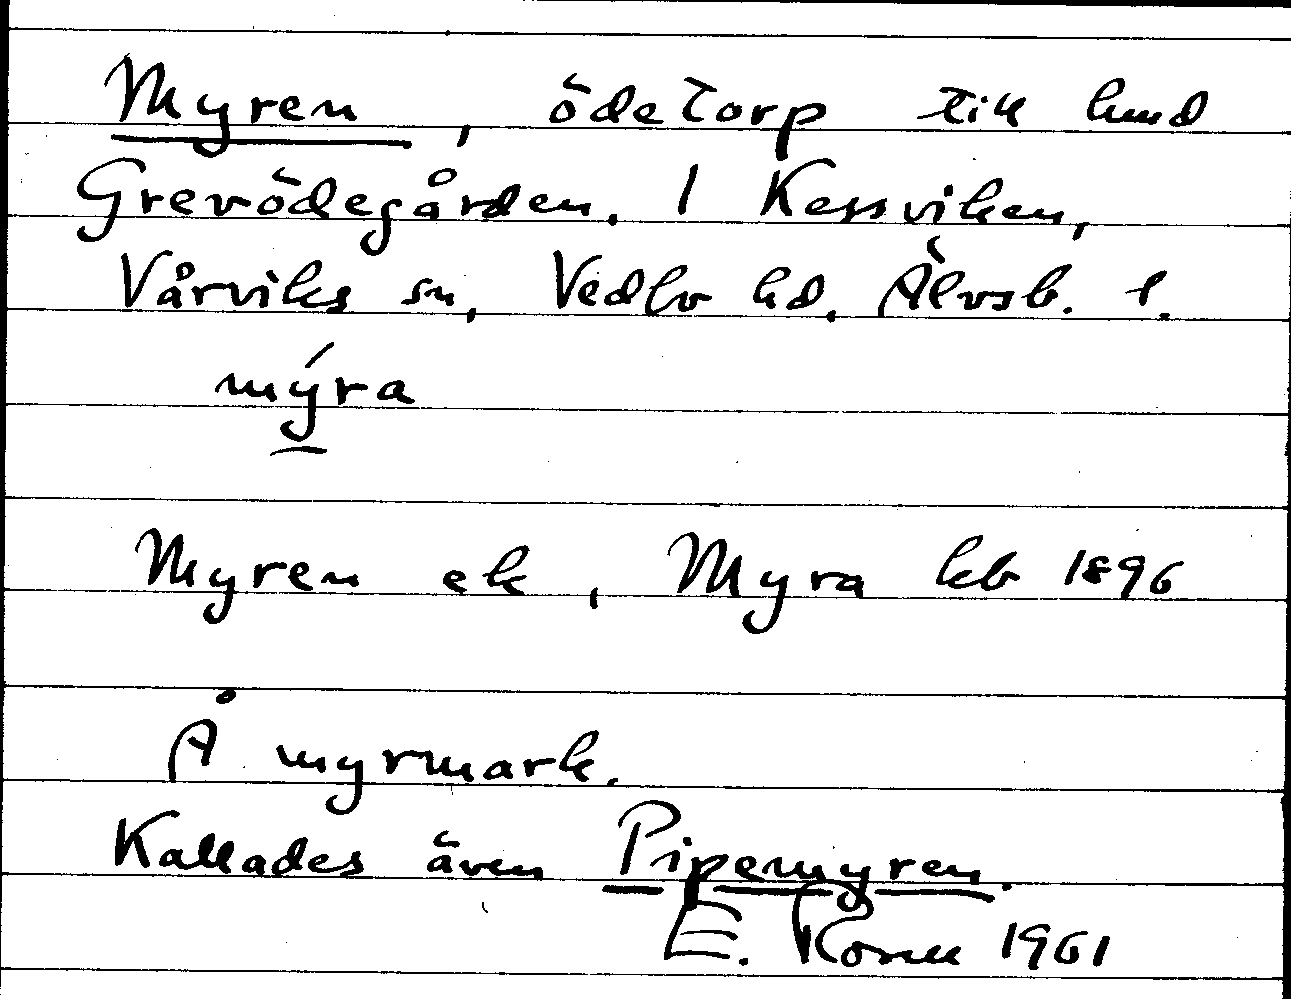 Myren, ödetorp till hmd
Grevödegården, 1 Kessviken,
Vårviks sn, Vedbo hd, Älvsb. l.
mýra
Myren ek, Myra kb 1896
Å myrmark.
Kallades även Pipemyren.
E. 1961